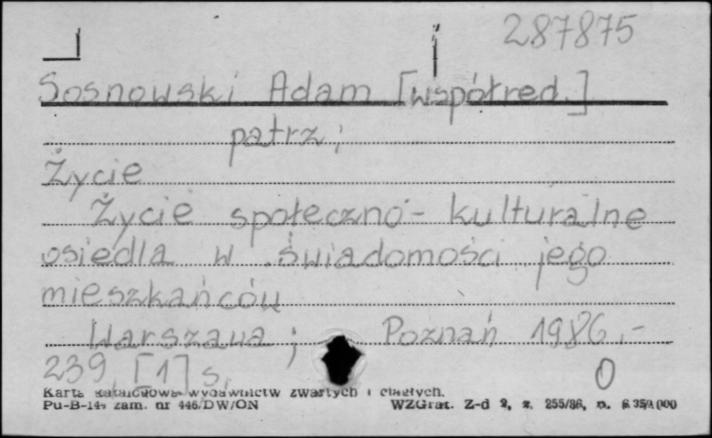 287875
Sosnowski Adam [współred.]
patrz:
Życie
Życie społeczno - kulturalne
osiedla w świadomości jego
mieszkańców
Warszawa ; Poznań 1986.-
239, [1] s. 0
Karta katalogowa wydawnictw zwartych i ciągłych.
Pu-B-14, zam. nr 446/DW/ON WZGraf. Z-d 2, z. 255/86, n.